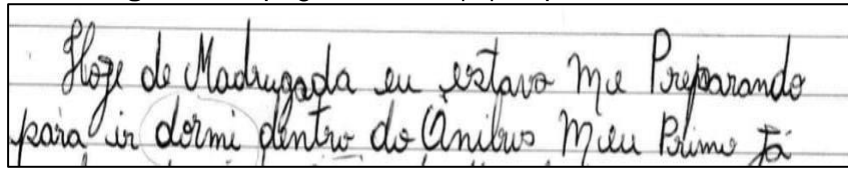 Hoje de Madrugada eu estava me Preparando
para ir dormi dentro do Ônibus Meu Primo Já